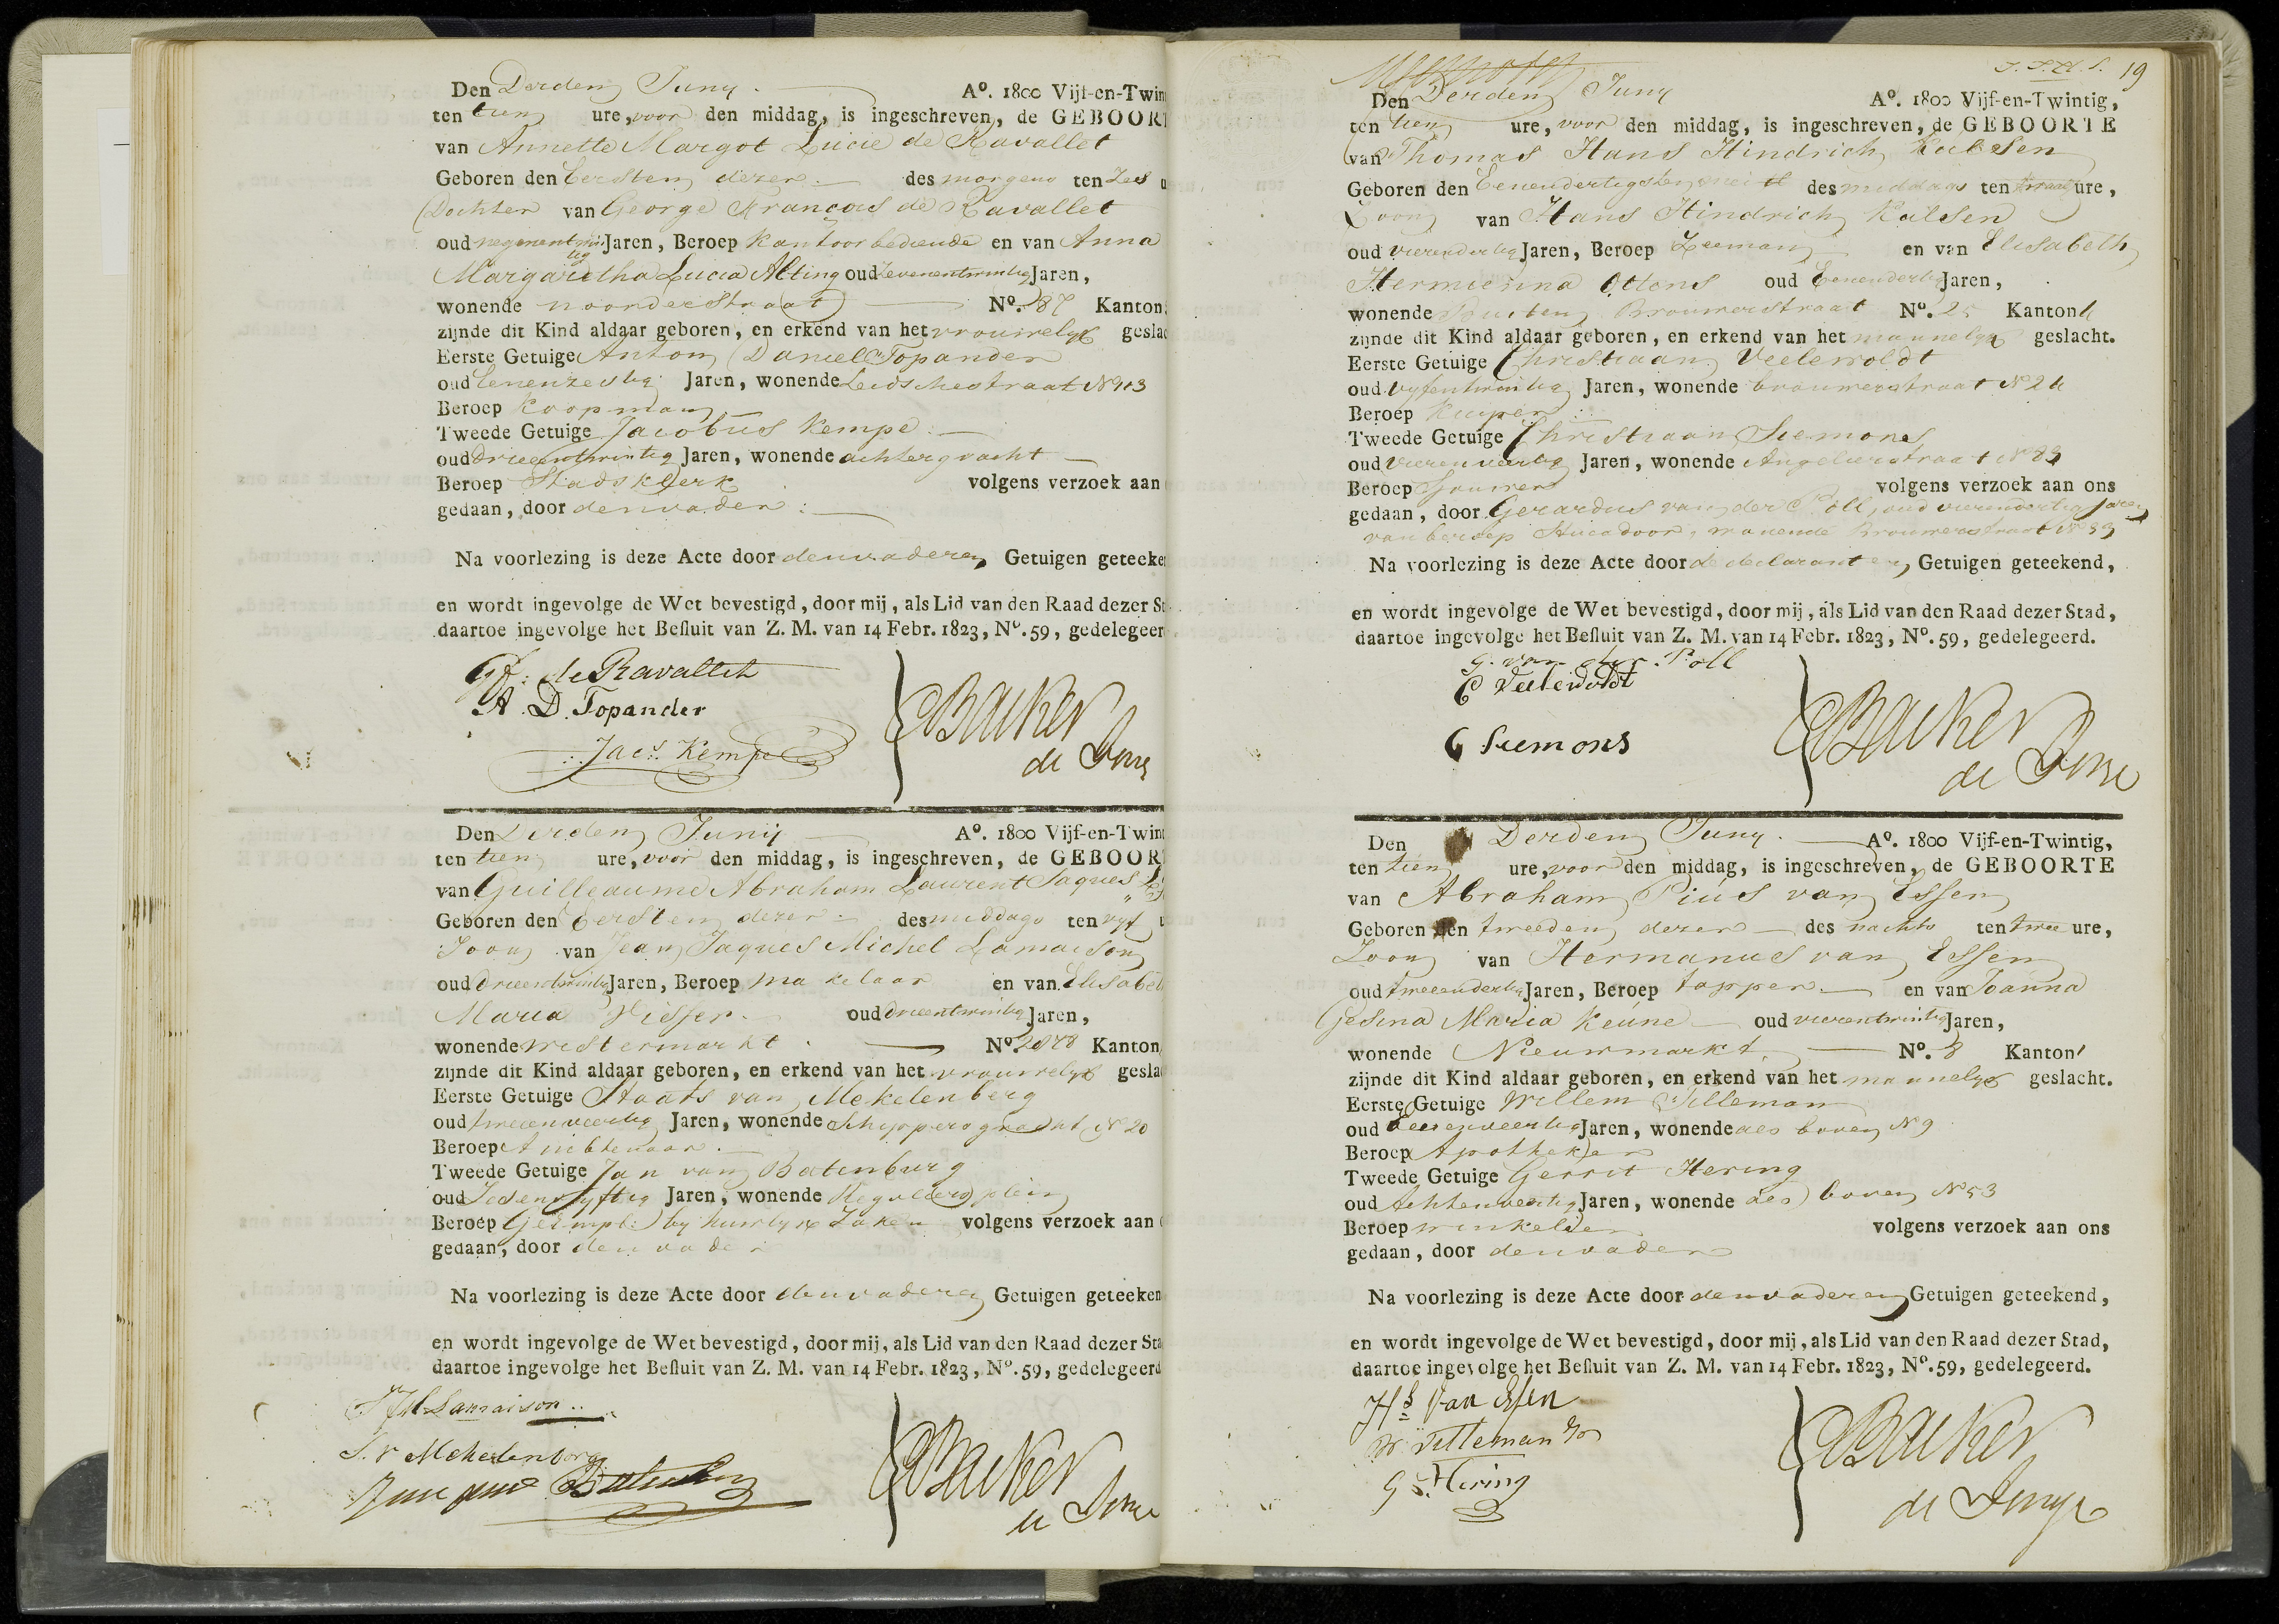 Den Derden Juny. Ao. 1800 Vijf-en-Twin
ten tien ure, voor den middag, is ingeschreven, de GEBOORT
van Annette Margot Lucie de Ravallet
Geboren den Eersten dezer des morgens ten Zes u
Dochter van George François de Ravallet
oud negenentwintig Jaren, Beroep Kantoorbediende en van Anna
Margaretha Lucia Alting oud Zevenentwintig Jaren,
wonende noorderstraat No. 87 Kanton
zijnde dit Kind aldaar geboren, en erkend van het vrouwelyk geslac
Eerste Getuige Antony Daniel Topander
oud Eenenzestig Jaren, wonende Leidschestraat No 113
Beroep Koopman
Tweede Getuige Jacobus Kempe
oud drieentwintig Jaren, wonende achtergracht
Beroep Stadsklerk volgens verzoek aan
gedaan, door den vader
Na voorlezing is deze Acte door den vader en Getuigen geteeken
en wordt ingevolge de Wet bevestigd, door mij, als Lid van den Raad dezer St
daartoe ingevolge het Besluit van Z. M. van 14 Febr. 1823, No. 59, gedelegeer
Gf: de Ravallet
A. D. Topander
Jacs. Kempe
Backer
de Jonge
Den Derden Junij Ao. 1800 Vijf-en-Twint
ten tien ure, voor den middag, is ingeschreven, de GEBOOR
van Guilleaume Abraham Laurent Jaques
Geboren den Eersten dezer des middags ten vyf u
Zoon van Jean Jaques Michel Lamaison
oud drieentwintig Jaren, Beroep makelaar en van Elisabeth
Maria Visser oud drieentwintig Jaren,
wonende westermarkt No. Kanton
zijnde dit Kind aldaar geboren, en erkend van het vrouwelyk gesla
Eerste Getuige Staats van Mekelenberg
oud tweeenveertig Jaren, wonende Schippersgracht No 20
Beroep Ambtenaar
Tweede Getuige Jan van Batenburg
oud Zesenvyftig Jaren, wonende Reguliersplein
Beroep Geëmpl: by huwlyx Zaken volgens verzoek aan o
gedaan, door den vader
Na voorlezing is deze Acte door den vader en Getuigen geteeken
en wordt ingevolge de Wet bevestigd, door mij, als Lid van den Raad dezer Sta
daartoe ingevolge het Besluit van Z. M. van 14 Febr. 1823, No. 59, gedelegeerd
J J M Lamaison
S. v Mekelenborg
Jan van Batenburg
Backer
de Jonge
19
Den Derden Juny Ao. 1800 Vijf-en-Twintig,
ten tien ure, voor den middag, is ingeschreven, de GEBOORTE
van Thomas Hans Hindrich Kalesen
Geboren den Eenendertigsten mei des middags ten twaalf ure,
Zoon van Hans Hindrich Kalesen
oud vierendertig Jaren, Beroep Zeeman en van Elisabeth
Hermiesina Ottens oud Eenendertig Jaren,
wonende Buiten Brouwerstraat No. 25 Kanton
zijnde dit Kind aldaar geboren, en erkend van het mannelyk geslacht.
Eerste Getuige Christiaan Veelewoldt
oud vyfentwintig Jaren, wonende brouwerstraat No 24
Beroep Kuiper
Tweede Getuige Christiaan Siemons
oud vierenveertig Jaren, wonende Angelierstraat No 89
Beroep Sjouwer volgens verzoek aan ons
gedaan, door Gerardus van der Poll, oud vierenveertig Jaren
van beroep Stucadoor, wonende Brouwerstraat No 33
Na voorlezing is deze Acte door de declarant en Getuigen geteekend,
en wordt ingevolge de Wet bevestigd, door mij, als Lid van den Raad dezer Stad,
daartoe ingevolge het Besluit van Z. M. van 14 Febr. 1823, No. 59, gedelegeerd.
G. van der Poll
C Veelewoldt
C Siemons
Backer
de Jonge
Den Derden Juny. Ao. 1800 Vijf-en-Twintig,
ten tien ure, voor den middag, is ingeschreven, de GEBOORTE
van Abraham Pius van Essen
Geboren den tweeden dezer des nachts ten twee ure,
Zoon van Hermanus van Essen
oud tweeendertig Jaren, Beroep tapper en van Joanna
Gesina Maria Keune oud vierentwintig Jaren,
wonende Nieuwmarkt No. 8 Kanton 1
zijnde dit Kind aldaar geboren, en erkend van het mannelyk geslacht.
Eerste Getuige Willem Tilleman
oud Jaren, wonende als boven No 9
Beroep Apotheker
Tweede Getuige Gerrit Hering
oud Achtenveertig Jaren, wonende als boven No 53
Beroep winkelier volgens verzoek aan ons
gedaan, door den vader
Na voorlezing is deze Acte door den vader en Getuigen geteekend,
en wordt ingevolge de Wet bevestigd, door mij, als Lid van den Raad dezer Stad,
daartoe ingevolge het Besluit van Z. M. van 14 Febr. 1823, No. 59, gedelegeerd.
Hs Van Essen
W. Tilleman
G Hering
Backer
de Jonge